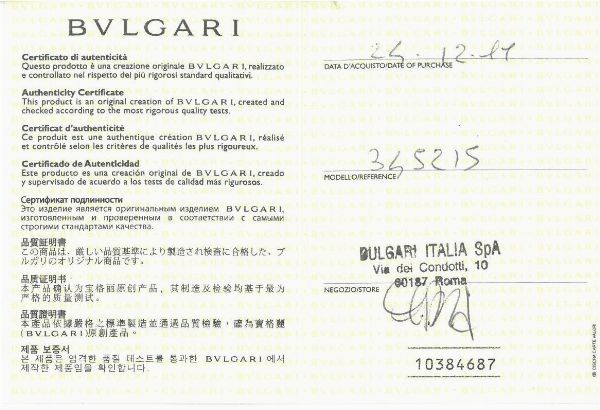 BVLGARI
Certificato di autenticità
Questo prodotto è una creazione originale BVLGARI, realizzato
e controllato nel rispetto dei più rigorosi standard qualitativi.
Authenticity Certificate
This product is an original creation of BVLGARI, created and
checked according to the most rigorous quality tests.
Certificat d'authenticité
Ce produit est une authentique création BVLGARI, réalisé
et contrôlé selon les critères de qualité les plus rigoureux.
Certificado de Autenticidad
Este producto es una creación original de BVLGARI, creado
y supervisado de acuerdo a los tests de calidad más rigurosos.
Сертификат подлинности
Это изделие является оригинальным изделием BVLGARI,
изготовленным и проверенным в соответствии с самыми
строгими стандартами качества.
品質証明書
この商品は、厳しい品質基準により製造され検査に合格した、ブ
ルガリのオリジナル商品です。
品质证明书
本产品确认为宝格丽原创产品，其制造及检验均基于最为
严格的质量测试。
品質證明書
本產品依據嚴格之標準製造並通過品質檢驗，確為寶格麗
(BVLGARI)原創產品。
제품 보증서
본 제품은 엄격한 품질 테스트를 통과한 BVLGARI 에서
제작한 제품임을 확인합니다.
12.11
DATA D'ACQUISTO/DATE OF PURCHASE
345215
MODELLO/REFERENCE
BULGARI ITALIA SpA
Via dei Condotti, 10
00187 Roma
NEGOZIO/STORE
10384687